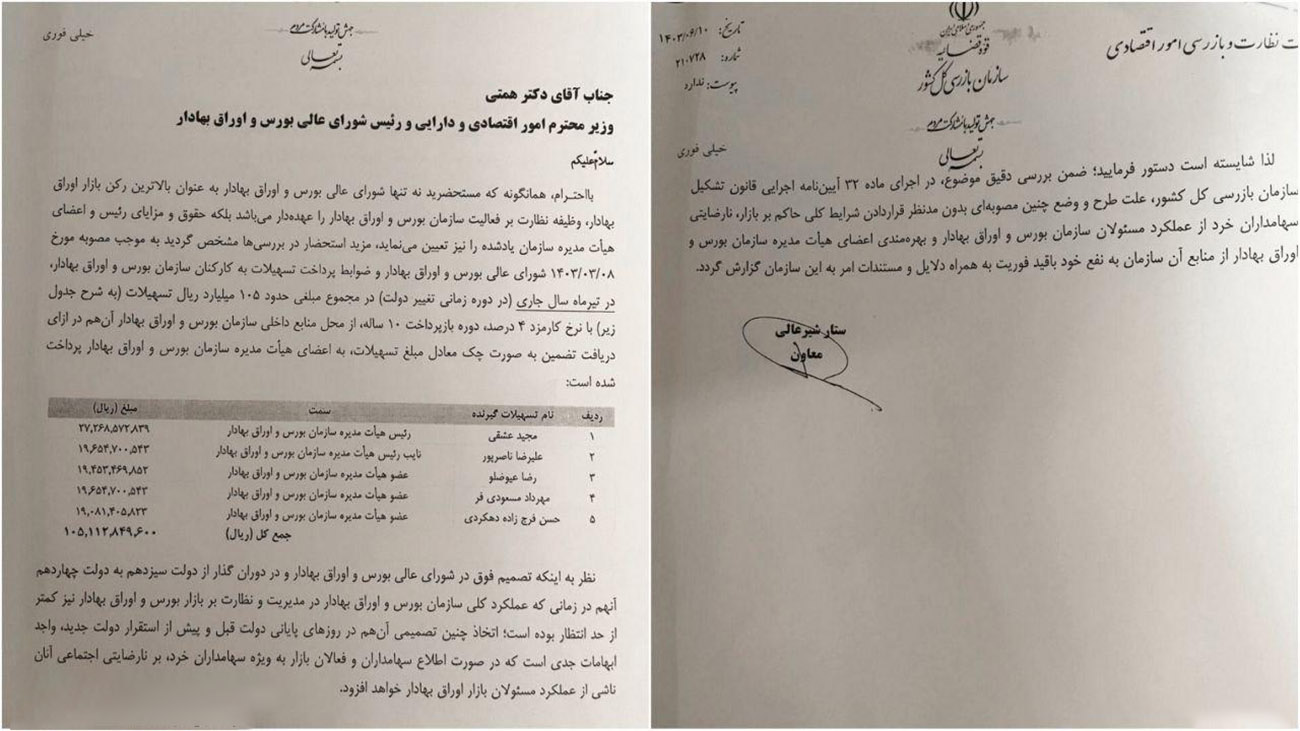 جهش تولید با مشارکت مردم
خیلی فوری
بسمه تعالی
جناب آقای دکتر همتی
وزیر محترم امور اقتصادی و دارایی و رئیس شورای عالی بورس و اوراق بهادار
سلام‌علیکم
بااحترام، همانگونه که مستحضرید نه تنها شورای عالی بورس و اوراق بهادار به عنوان بالاترین رکن بازار اوراق
بهادار، وظیفه نظارت بر فعالیت سازمان بورس و اوراق بهادار را عهده‌دار می‌باشد بلکه حقوق و مزایای رئیس و اعضای
هیأت مدیره سازمان یادشده را نیز تعیین می‌نماید، مزید استحضار در بررسی‌ها مشخص گردید به موجب مصوبه مورخ
۱۴۰۳/۰۳/۰۸ شورای عالی بورس و اوراق بهادار و ضوابط پرداخت تسهیلات به کارکنان سازمان بورس و اوراق بهادار،
در تیرماه سال جاری (در دوره زمانی تغییر دولت) در مجموع مبلغی حدود ۱۰۵ میلیارد ریال تسهیلات (به شرح جدول
زیر) با نرخ کارمزد ۴ درصد، دوره بازپرداخت ۱۰ ساله، از محل منابع داخلی سازمان بورس و اوراق بهادار آن‌هم در ازای
دریافت تضمین به صورت چک معادل مبلغ تسهیلات، به اعضای هیأت مدیره سازمان بورس و اوراق بهادار پرداخت
شده است:
ردیف نام تسهیلات گیرنده سمت مبلغ (ریال)
۱ مجید عشقی رئیس هیأت مدیره سازمان بورس و اوراق بهادار ۲۷,۲۶۸,۵۷۲,۸۳۹
۲ علیرضا ناصرپور نایب رئیس هیأت مدیره سازمان بورس و اوراق بهادار ۱۹,۶۵۴,۷۰۰,۵۴۳
۳ رضا عیوضلو عضو هیأت مدیره سازمان بورس و اوراق بهادار ۱۹,۴۵۳,۴۶۹,۸۵۲
۴ مهرداد مسعودی فر عضو هیأت مدیره سازمان بورس و اوراق بهادار ۱۹,۶۵۴,۷۰۰,۵۴۳
۵ حسن فرج زاده دهکردی عضو هیأت مدیره سازمان بورس و اوراق بهادار ۱۹,۰۸۱,۴۰۵,۸۲۳
جمع کل (ریال) ۱۰۵,۱۱۲,۸۴۹,۶۰۰
نظر به اینکه تصمیم فوق در شورای عالی بورس و اوراق بهادار و در دوران گذار از دولت سیزدهم به دولت چهاردهم
آنهم در زمانی که عملکرد کلی سازمان بورس و اوراق بهادار در مدیریت و نظارت بر بازار بورس و اوراق بهادار نیز کمتر
از حد انتظار بوده است؛ اتخاذ چنین تصمیمی آن‌هم در روزهای پایانی دولت قبل و پیش از استقرار دولت جدید، واجد
ابهامات جدی است که در صورت اطلاع سهامداران و فعالان بازار به ویژه سهامداران خرد، بر نارضایتی اجتماعی آنان
ناشی از عملکرد مسئولان بازار اوراق بهادار خواهد افزود.
جمهوری اسلامی ایران
قوه قضاییه
سازمان بازرسی کل کشور
ت نظارت و بازرسی امور اقتصادی
تاریخ: ۱۴۰۳/۰۶/۱۰
شماره: ۲۱۰۷۲۸
پیوست: ندارد
جهش تولید با مشارکت مردم
خیلی فوری
بسمه تعالی
لذا شایسته است دستور فرمایید؛ ضمن بررسی دقیق موضوع، در اجرای ماده ۳۲ آیین‌نامه اجرایی قانون تشکیل
سازمان بازرسی کل کشور، علت طرح و وضع چنین مصوبه‌ای بدون مدنظر قراردادن شرایط کلی حاکم بر بازار، نارضایتی
سهامداران خرد از عملکرد مسئولان سازمان بورس و اوراق بهادار و بهره‌مندی اعضای هیأت مدیره سازمان بورس و
اوراق بهادار از منابع آن سازمان به نفع خود باقید فوریت به همراه دلایل و مستندات امر به این سازمان گزارش گردد.
ستار شیرعالی
معاون